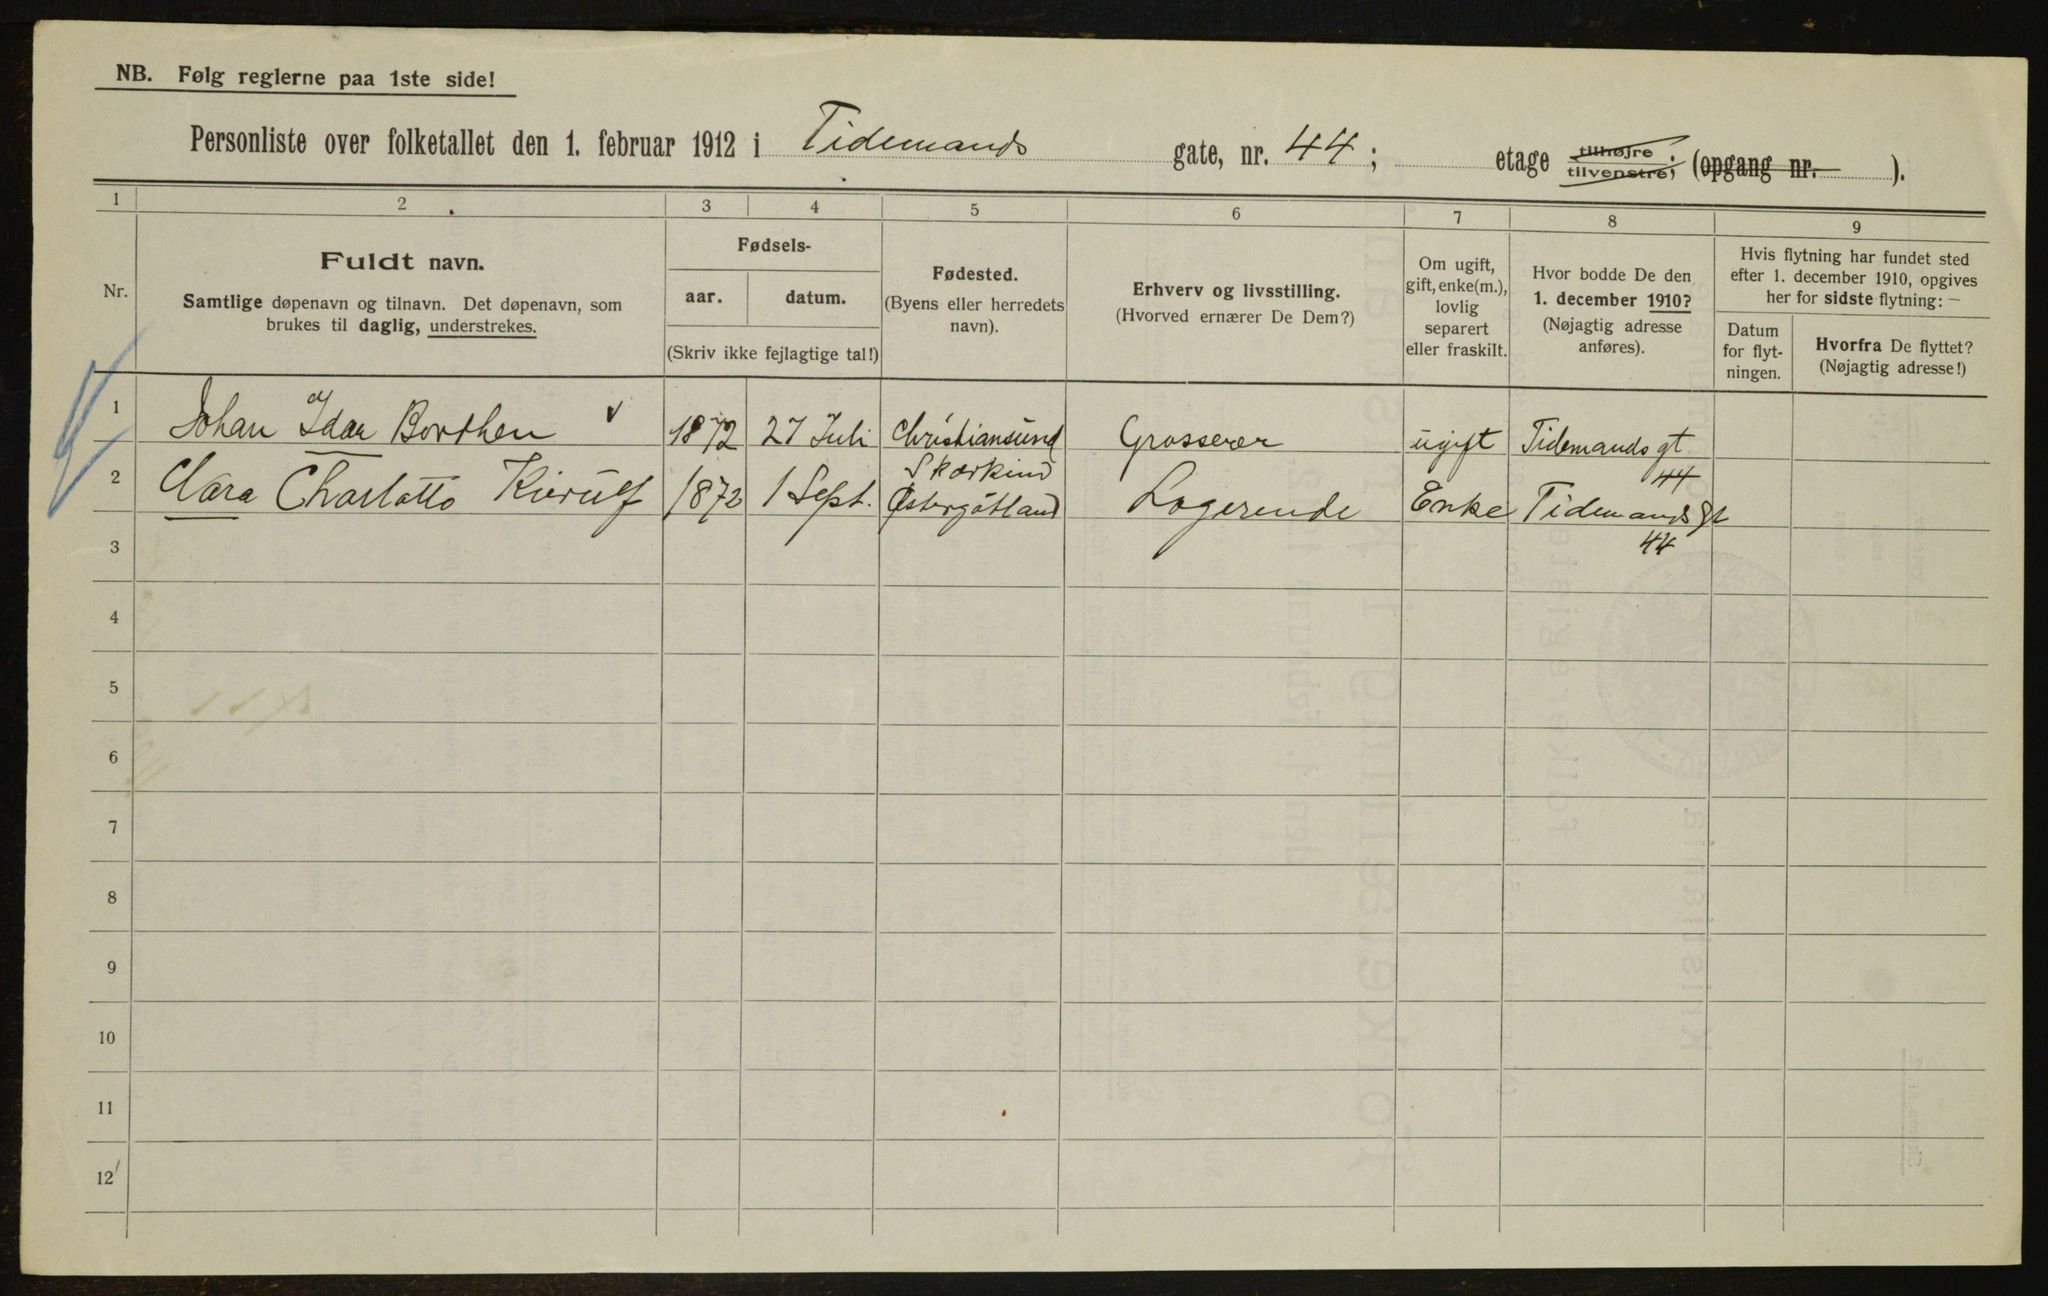 NB. Følg reglerne paa 1ste side!
Personliste over folketallet den 1. februar 1912 i Tidemands gate, nr. 44; etage tilhøjre tilvenstre; (opgang nr. ).
1 2 3 4 5 6 7 8 9
Nr.
Fuldt navn.
Samtlige døpenavn og tilnavn. Det døpenavn, som
brukes til daglig, understrekes.
Fødsels-
aar. datum.
(Skriv ikke fejlagtige tal!)
Fødested.
(Byens eller herredets
navn).
Erhverv og livsstilling.
(Hvorved ernærer De Dem?)
Om ugift,
gift, enke(m.),
lovlig
separert
eller fraskilt.
Hvor bodde De den
1. december 1910?
(Nøjagtig adresse
anføres).
Hvis flytning har fundet sted
efter 1. december 1910, opgives
her for sidste flytning: —
Datum
for flyt-
ningen.
Hvorfra De flyttet?
(Nøjagtig adresse!)
1 Johan Idar Borthen 1872 27 Juli Christiansund Grosserer ugift Tidemands gt
44
2 Clara Charlotte Kierulf 1872 1 Sept. Skærkind
Østergötland Logerende Enke Tidemands gt
44
3
4
5
6
7
8
9
10
11
12